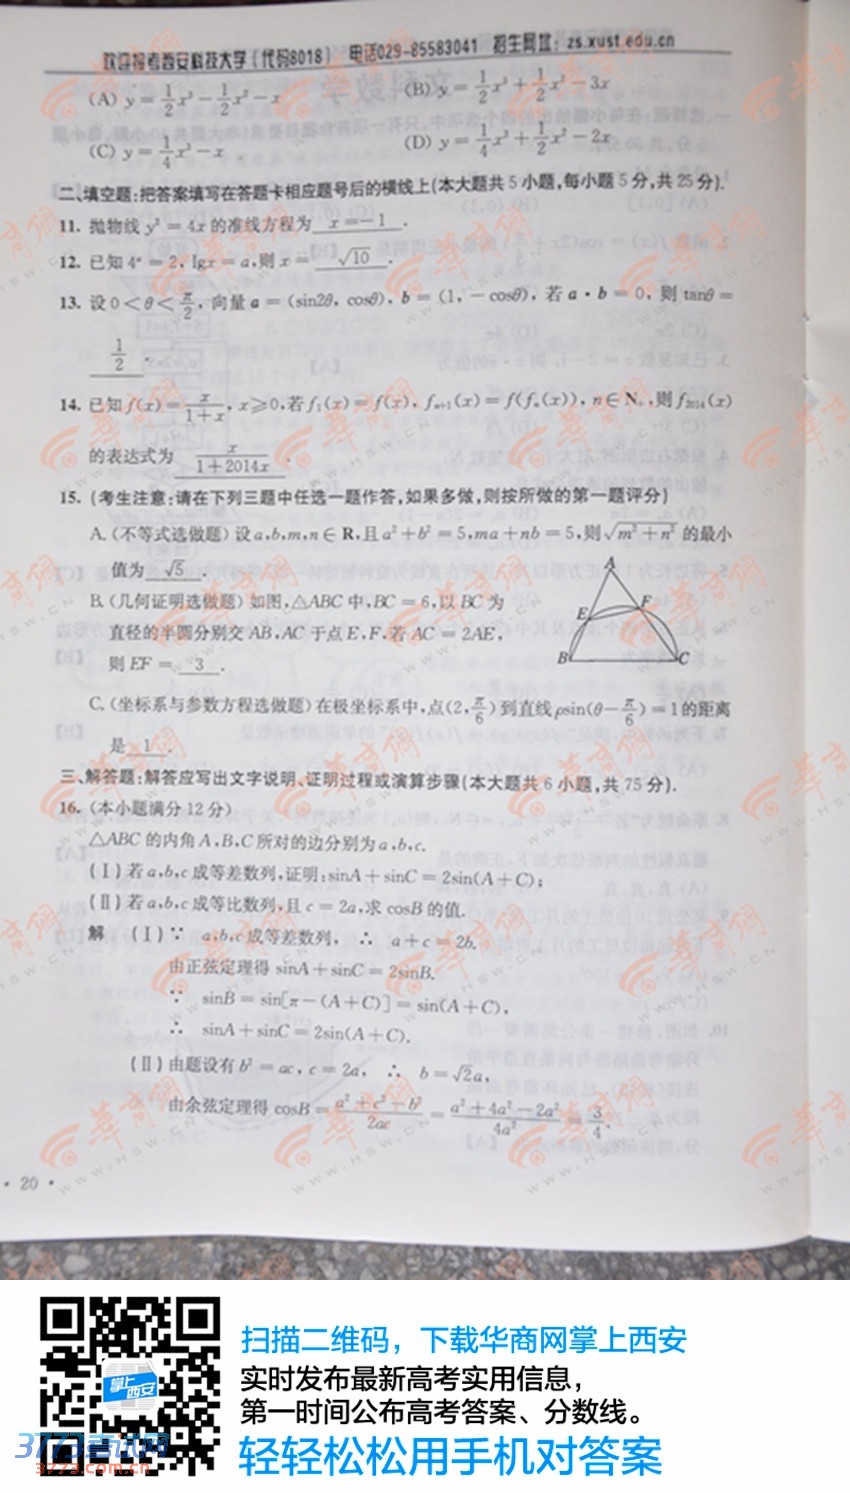 欢迎报考西安科技大学(代码8018) 电话029-85583041 招生网址:zs.xust.edu.cn
(A) y = 1/2 x³ − 1/2 x² − x (B) y = 1/2 x³ + 1/2 x² − 3x
(C) y = 1/4 x³ − x (D) y = 1/4 x³ + 1/2 x² − 2x
二、填空题:把答案填写在答题卡相应题号后的横线上(本大题共5小题,每小题5分,共25分).
11. 抛物线 y² = 4x 的准线方程为 x = −1 .
12. 已知 4ᵃ = 2, lgx = a,则 x = √10 .
13. 设 0 < θ < π/2, 向量 a = (sin2θ, cosθ), b = (1, −cosθ), 若 a · b = 0, 则 tanθ =
1/2 .
14. 已知 f(x) = x/(1+x), x ≥ 0,若 f₁(x) = f(x), fₙ₊₁(x) = f(fₙ(x)), n ∈ N₊,则 f₂₀₁₄(x)
的表达式为 x/(1+2014x) .
15. (考生注意:请在下列三题中任选一题作答,如果多做,则按所做的第一题评分)
A. (不等式选做题) 设 a,b,m,n ∈ R,且 a² + b² = 5,ma + nb = 5,则 √(m² + n²) 的最小
值为 √5 .
B. (几何证明选做题) 如图,△ABC 中,BC = 6,以 BC 为
直径的半圆分别交 AB,AC 于点 E,F,若 AC = 2AE,
则 EF = 3 .
A
E
F
B
C
C. (坐标系与参数方程选做题) 在极坐标系中,点(2, π/6) 到直线 ρsin(θ − π/6) = 1 的距离
是 1 .
三、解答题:解答应写出文字说明、证明过程或演算步骤(本大题共6小题,共75分).
16. (本小题满分12分)
△ABC 的内角 A,B,C 所对的边分别为 a,b,c.
(Ⅰ) 若 a,b,c 成等差数列,证明:sinA + sinC = 2sin(A + C);
(Ⅱ) 若 a,b,c 成等比数列,且 c = 2a,求 cosB 的值.
解 (Ⅰ) ∵ a,b,c 成等差数列, ∴ a + c = 2b.
由正弦定理得 sinA + sinC = 2sinB.
∵ sinB = sin[π − (A + C)] = sin(A + C),
∴ sinA + sinC = 2sin(A + C).
(Ⅱ) 由题设有 b² = ac, c = 2a, ∴ b = √2a,
由余弦定理得 cosB = (a² + c² − b²)/2ac = (a² + 4a² − 2a²)/4a² = 3/4.
· 20 ·
华商网
WWW.HSW.CN
扫描二维码,下载华商网掌上西安
实时发布最新高考实用信息,
第一时间公布高考答案、分数线。
轻轻松松用手机对答案
掌上西安
3773考试网
3773.com.cn